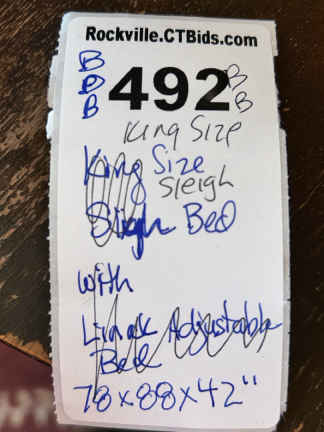 Rockville.CTBids.com
B
D
B
492
B
B
King Size
King Size
Sleigh
Sleigh Bed
with
Linak Adjustable
Bed
78x88x42"